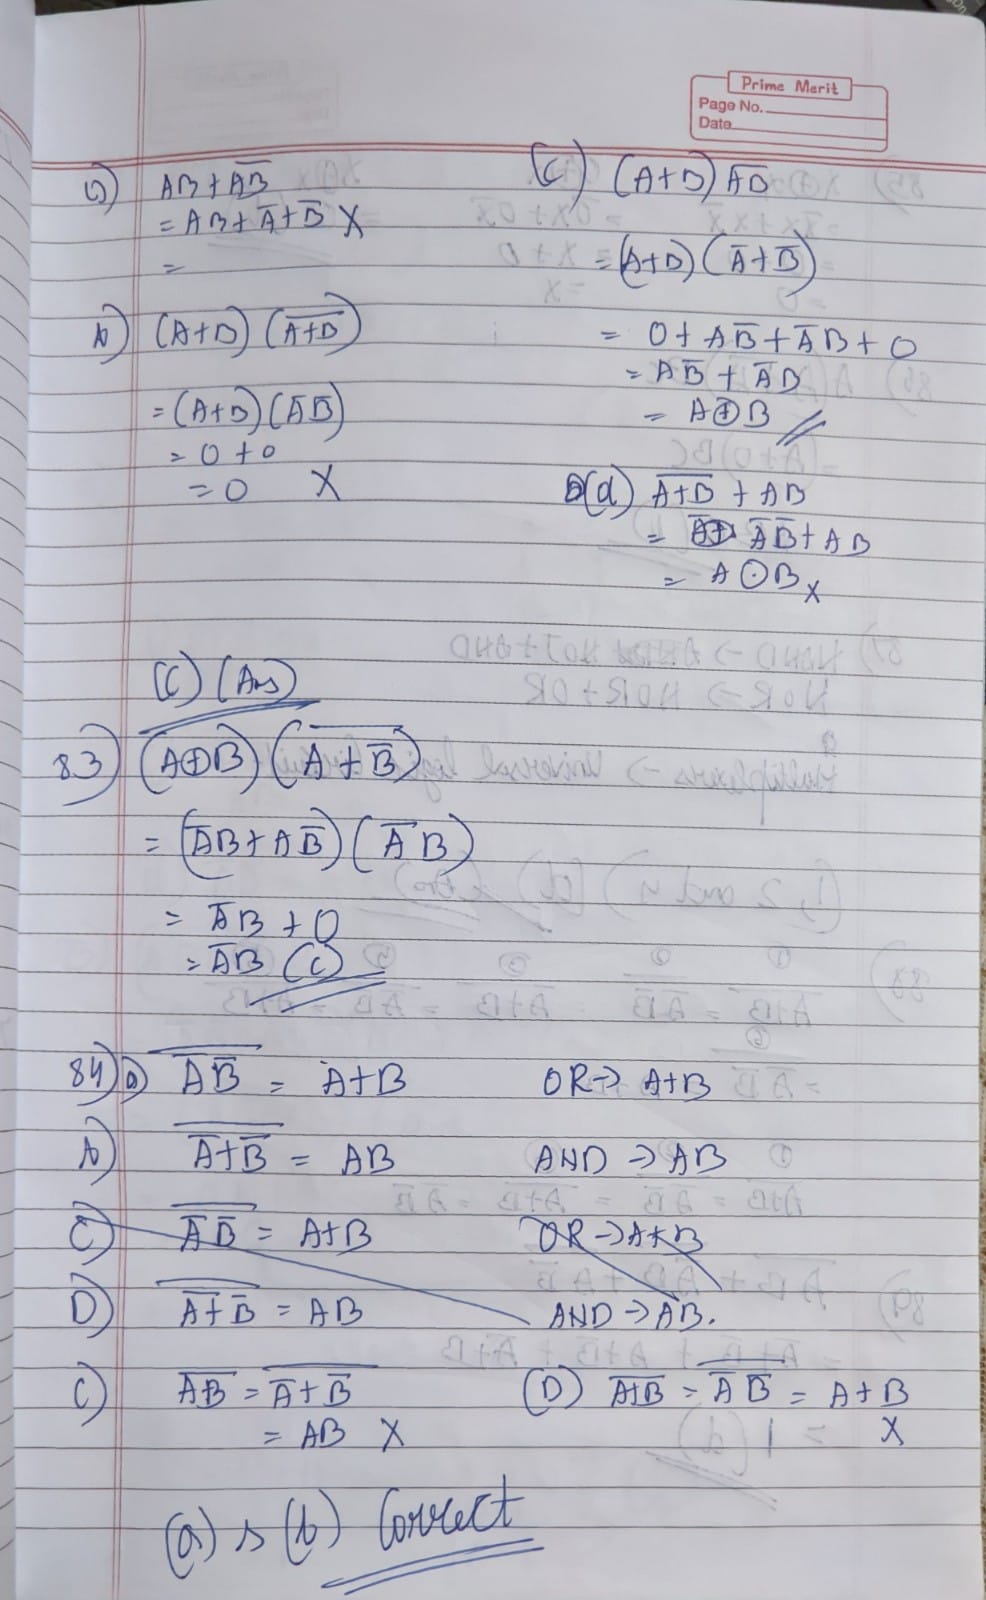 Prime Merit
Page No.
Date
a) AB + A̅B̅
= AB + A̅ + B̅ X
=
b) (A+B) (A̅+̅B̅)
= (A+B) (A̅ B̅)
= 0 + 0
= 0 X
(C) (A+B) A̅B̅
= (A+B) (A̅ + B̅)
= 0 + AB̅ + A̅B + 0
= AB̅ + A̅B
= A⊕B
(d) A̅+̅B̅ + AB
= A̅B̅ + AB
= A⊙B X
(C) (Ans)
83) (A⊕B) (A + B̅)̅
= (A̅B + AB̅) (A̅ B)
= A̅B + 0
= A̅B (C)
84) a) (A̅ B̅)̅ = A+B OR → A+B
b) (A̅ + B̅)̅ = AB AND → AB
C) (A̅ B̅)̅ = A+B OR → A+B
D) (A̅ + B̅)̅ = AB AND → AB.
C) A̅B̅ = (A̅ + B̅)̅
= AB X
(D) A̅+̅B̅ = (A̅ B̅)̅ = A + B
X
(a) s (b) Correct